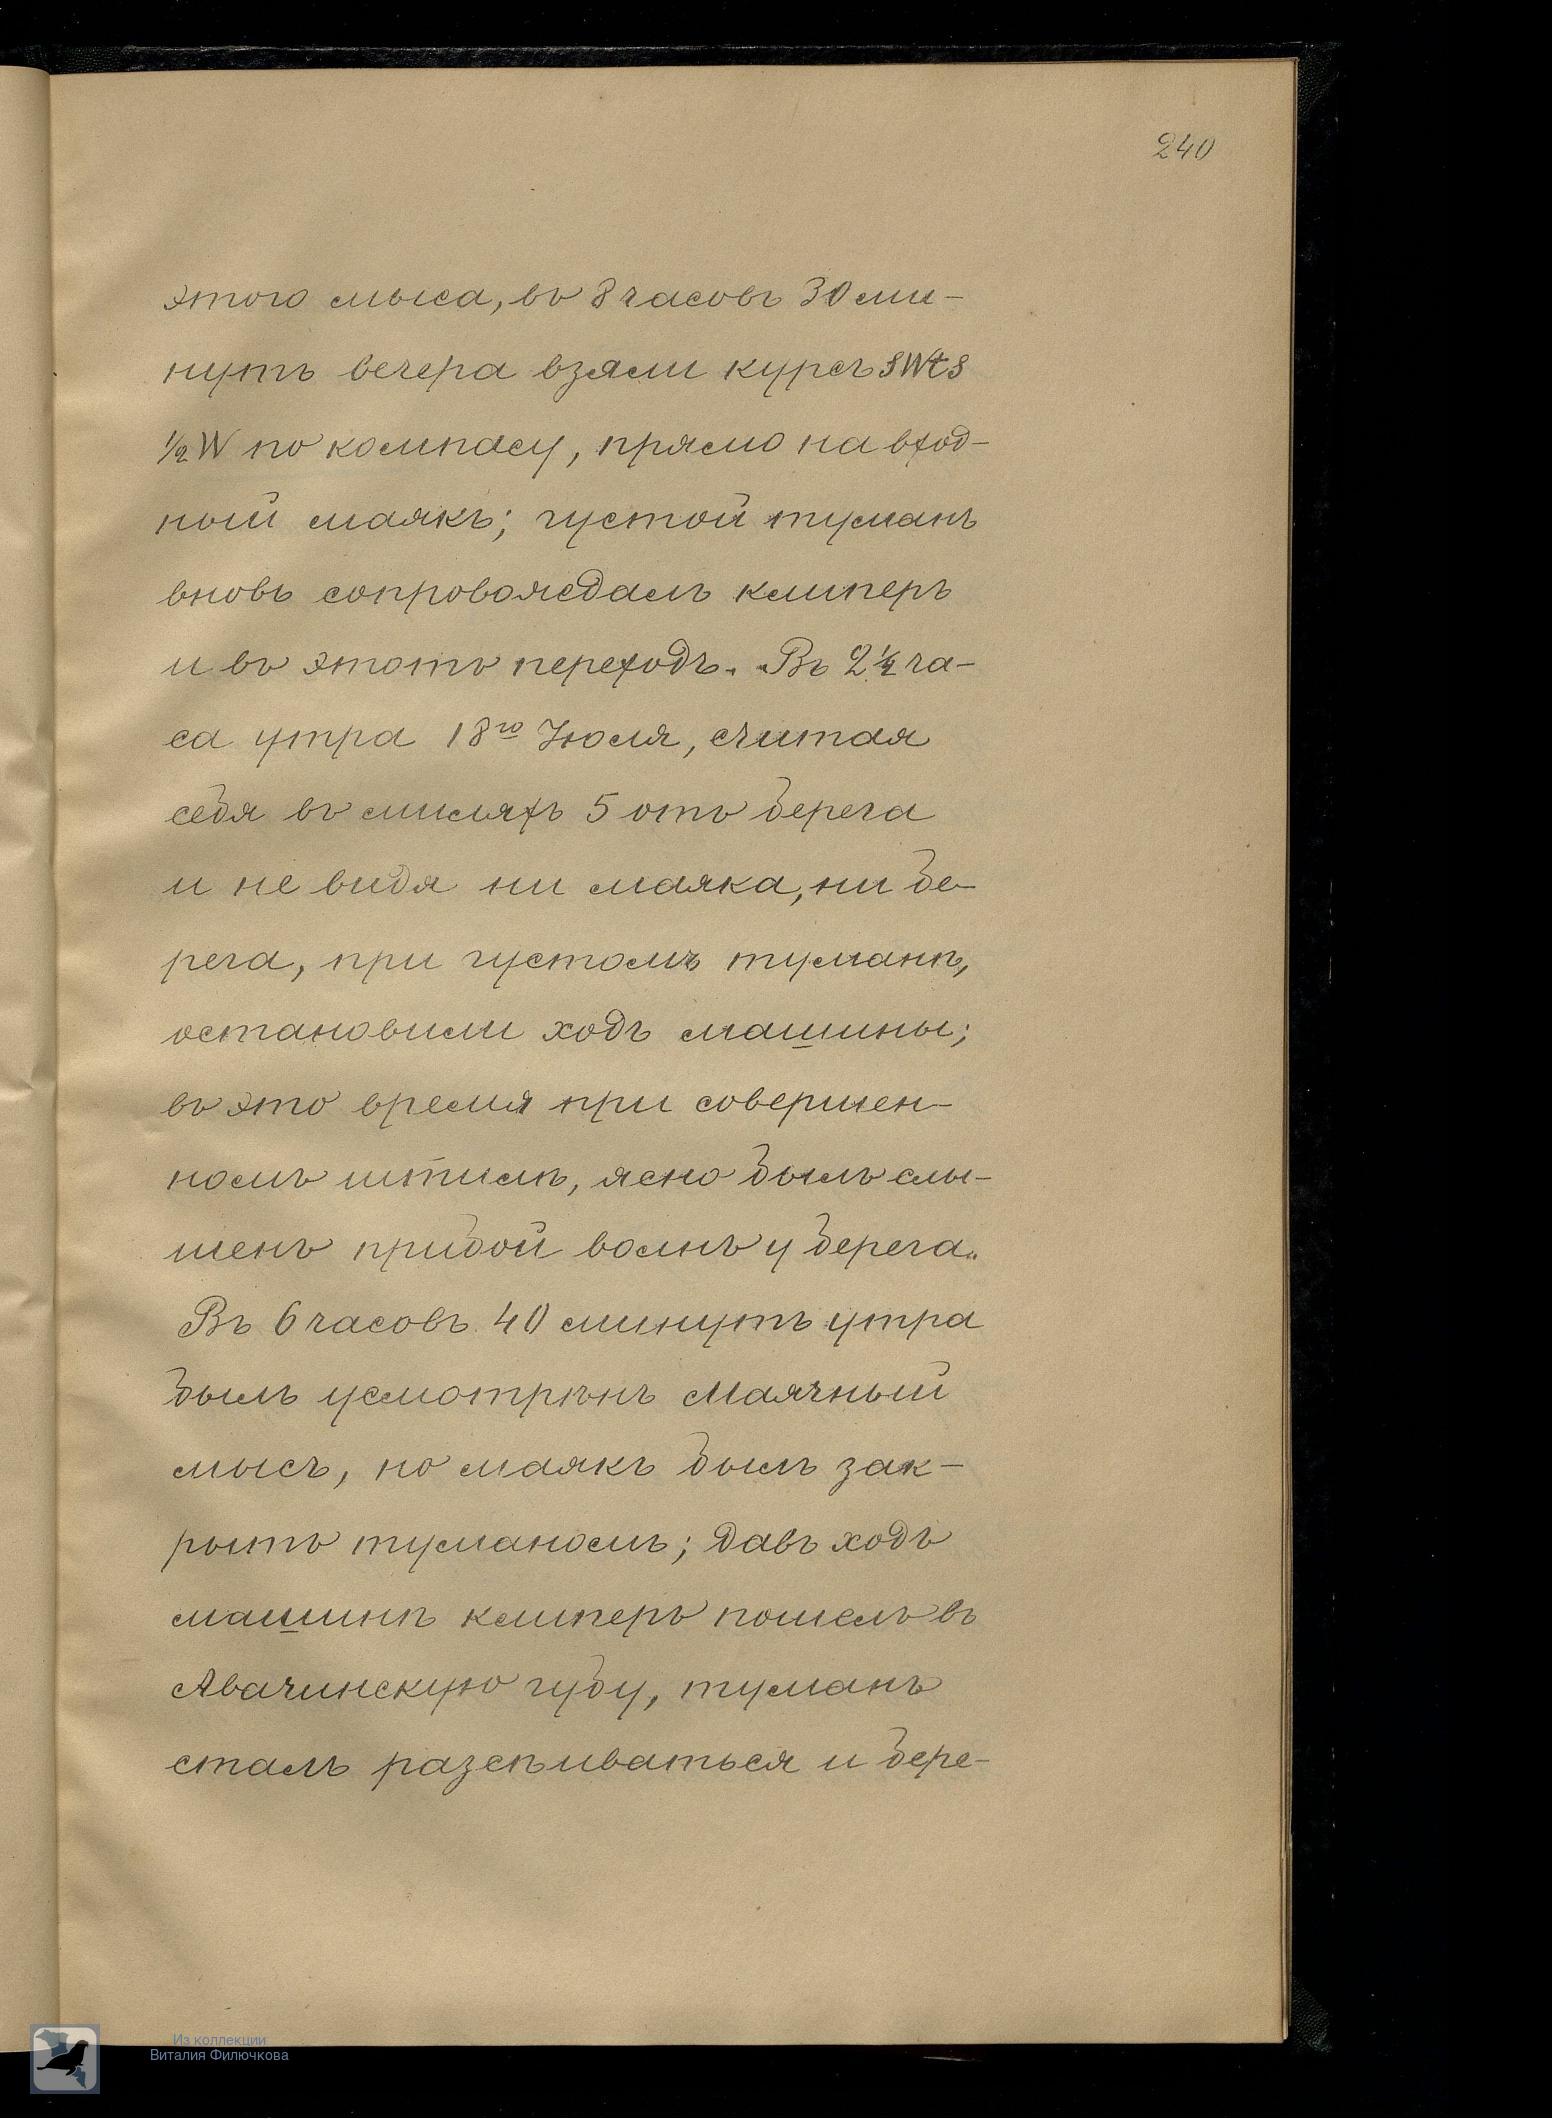 240
этого мыса, въ 8 часовъ 30 ми-
нутъ вечера взяли курсъ SWtS
½ W по компасу, прямо на вход-
ный маякъ; густой туманъ
вновь сопровождалъ клиперъ
и въ этотъ переходъ. Въ 2½ ча-
са утра 18го Іюля, считая
себя въ миляхъ 5 отъ берега
и не видя ни маяка, ни бе-
рега, при густомъ туманѣ,
остановили ходъ машины;
въ это время при совершен-
номъ штилѣ, ясно былъ слы-
шенъ прибой волнъ у берега.
Въ 6 часовъ 40 минутъ утра
былъ усмотрѣнъ Маячный
мысъ, но маякъ былъ зак-
рытъ туманомъ; давъ ходъ
машинѣ клиперъ пошелъ въ
Авачинскую губу, туманъ
сталъ разсѣиваться и бере-
Из коллекции
Виталия Филючкова